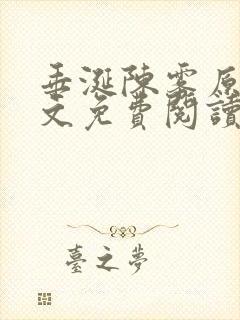 垂涎陳雾原
文免費閱讀
臺之夢